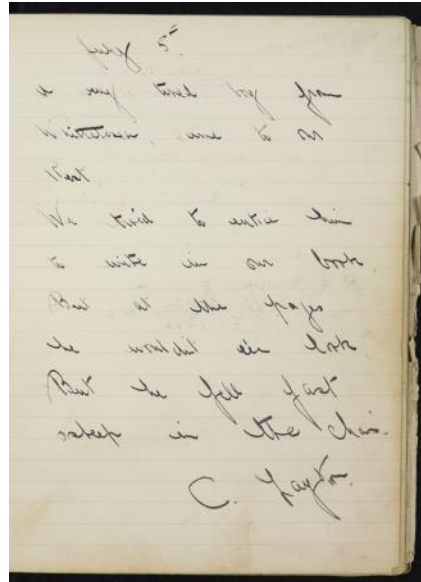 July 5th
a very tired boy from
came to our
We tried to entice him
to write in our book
But at the pages
he wouldnt e'en look
But he fell fast
asleep in the chair.
C. Layton.